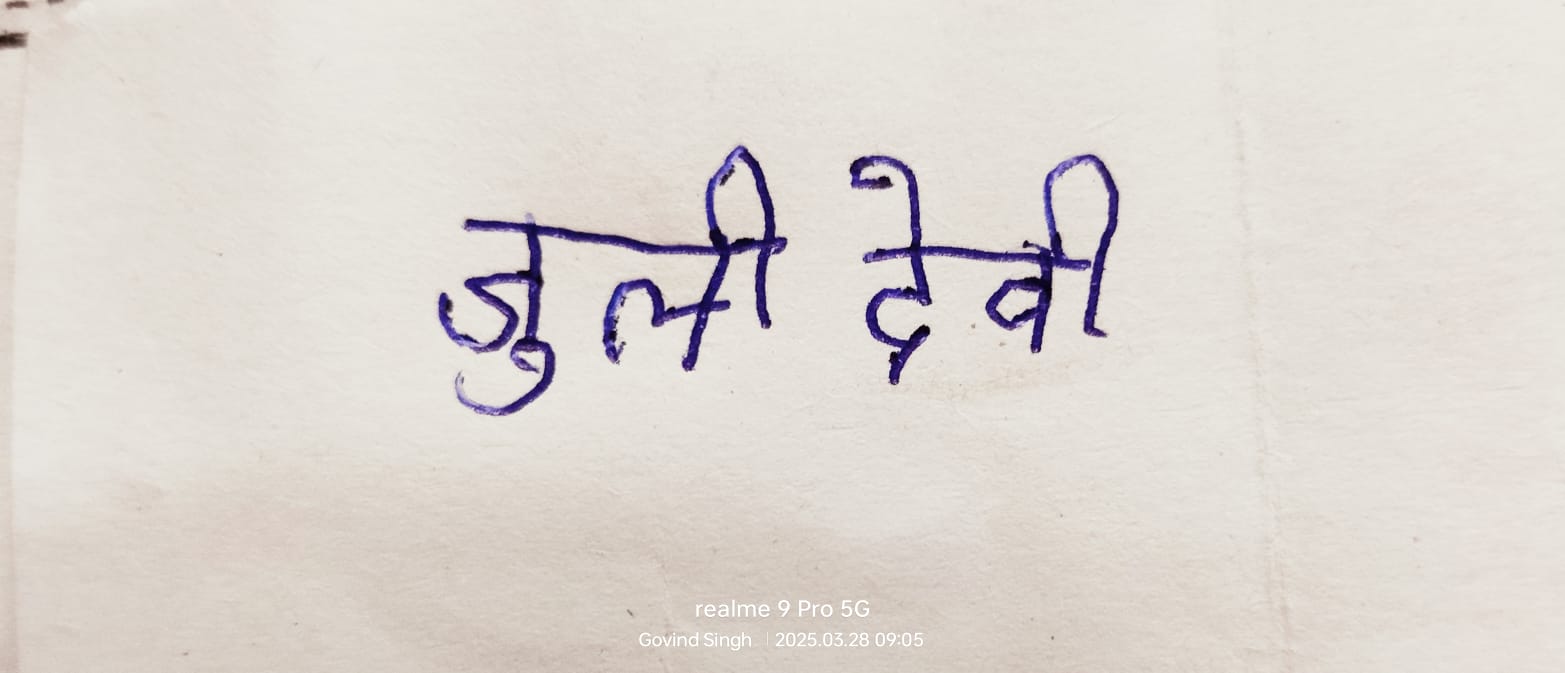 जुली देवी
realme 9 Pro 5G
Govind Singh | 2025.03.28 09:05